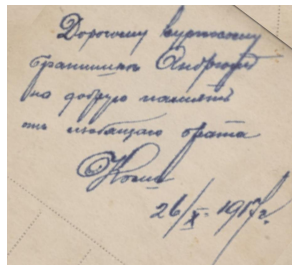 Дорогому
братишке Андрюше
на добрую память
отъ любящаго брата
Коли
26/X. 1917г.